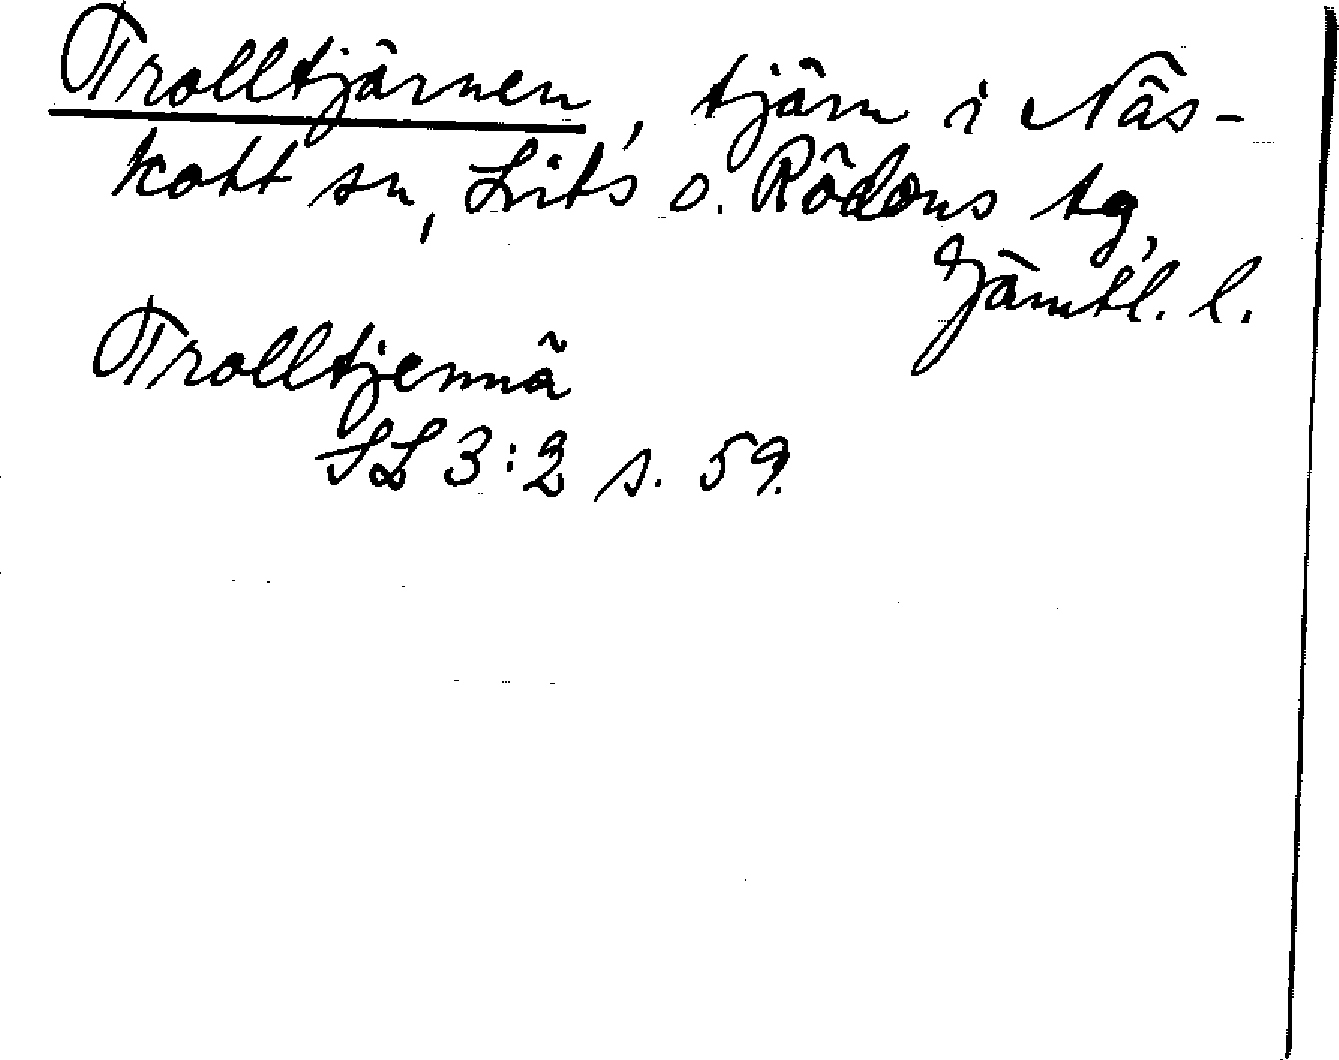 Trolltjärnen, tjärn i Näs-
kott sn, Lits o. Rödöns tg,
Jämtl. l.
Trolltjennä
SL 3:2 s. 59.